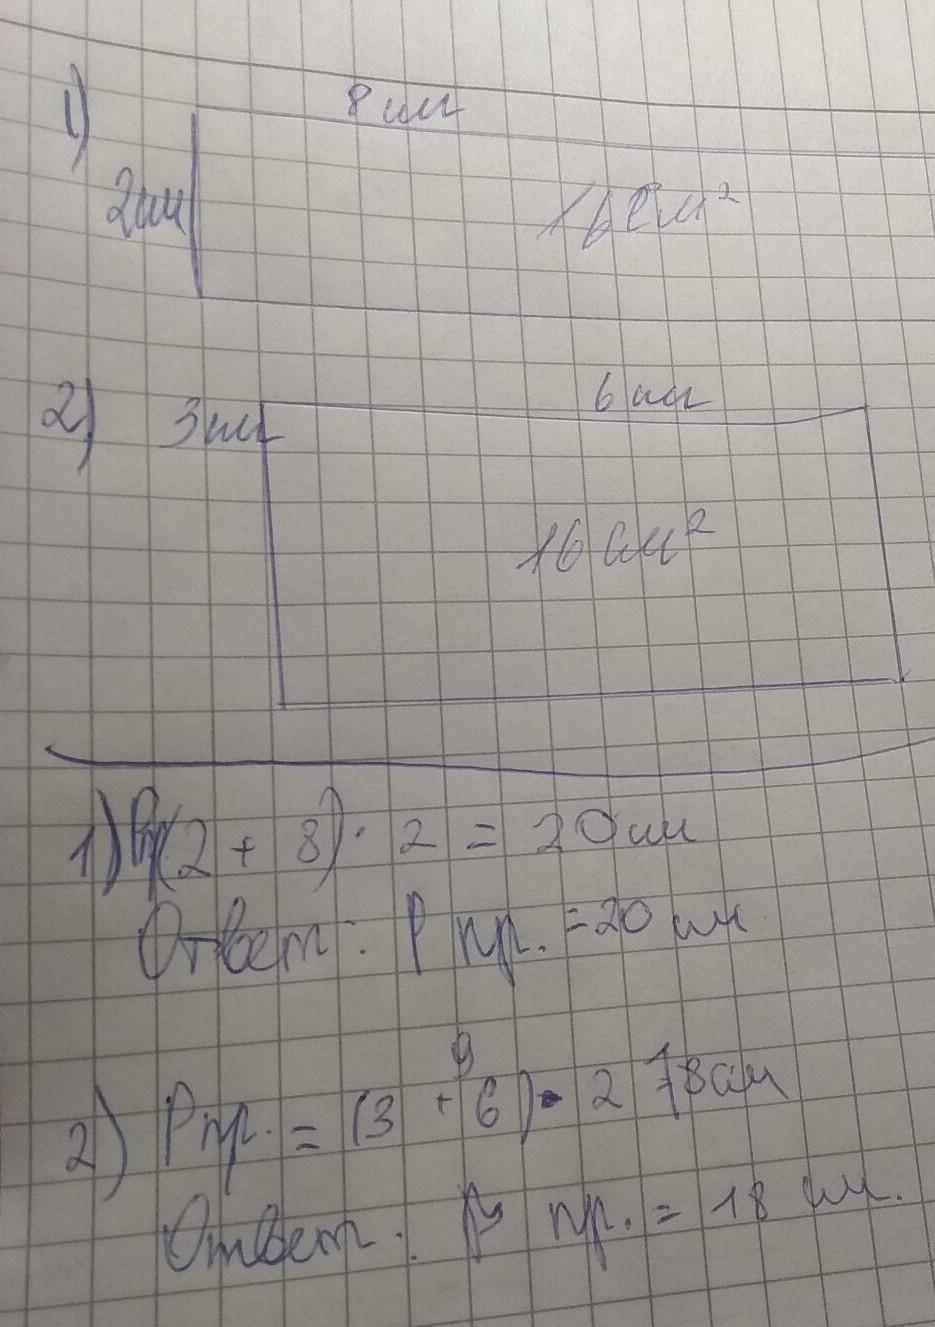 1)
8 см
2см
16 см²
2)
3см
6 см
16 см²
1) Pпр(2 + 8) · 2 = 20 см
Ответ: P пр. = 20 см
9
2) Pпр. = (3 + 6) · 2 18см
Ответ: P пр. = 18 см.